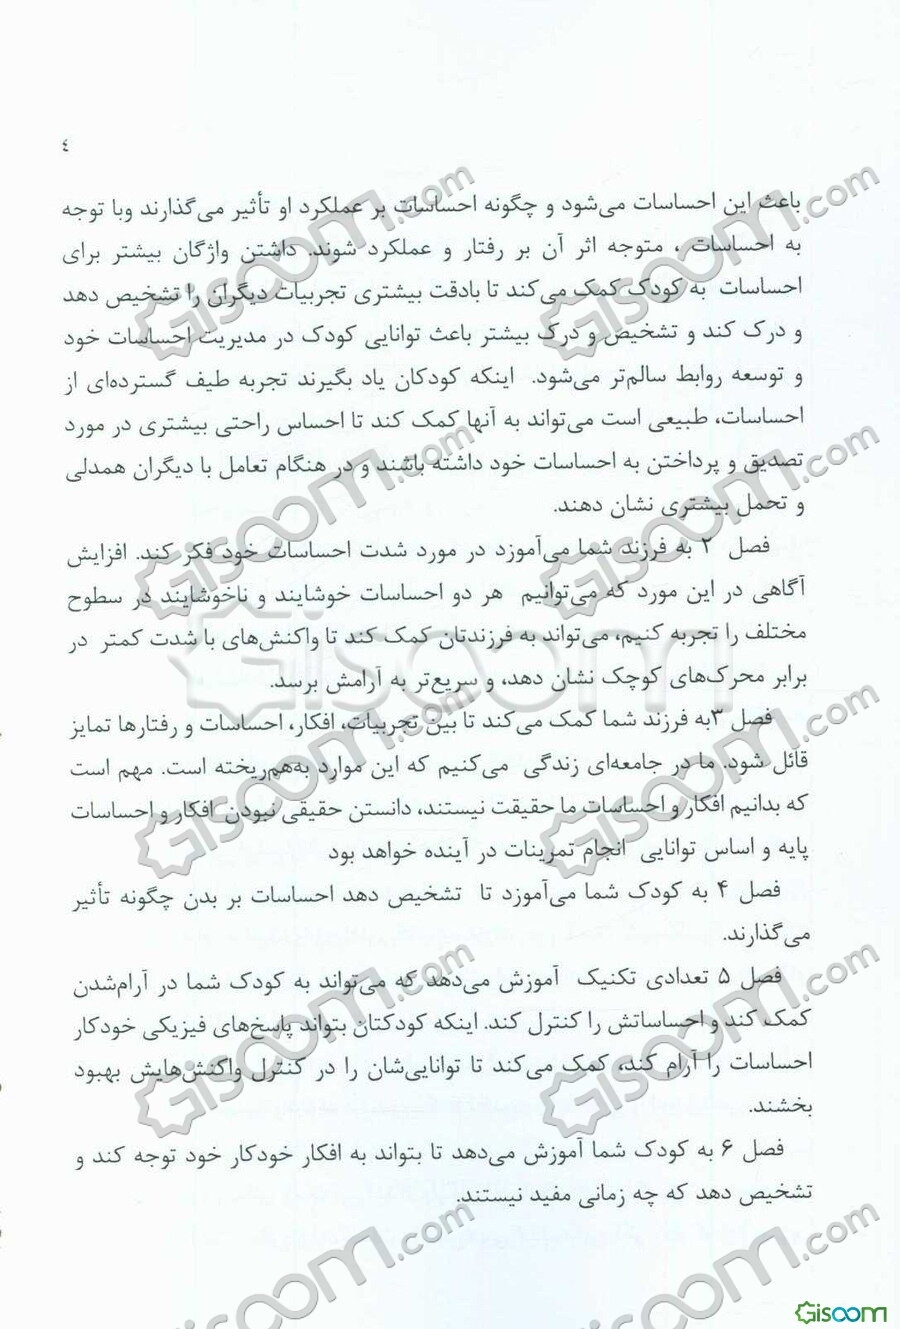 ٤
باعث این احساسات می‌شود و چگونه احساسات بر عملکرد او تأثیر می‌گذارند وبا توجه
به احساسات ، متوجه اثر آن بر رفتار و عملکرد شوند. داشتن واژگان بیشتر برای
احساسات به کودک کمک می‌کند تا بادقت بیشتری تجربیات دیگران را تشخیص دهد
و درک کند و تشخیص و درک بیشتر باعث توانایی کودک در مدیریت احساسات خود
و توسعه روابط سالم‌تر می‌شود. اینکه کودکان یاد بگیرند تجربه طیف گسترده‌ای از
احساسات، طبیعی است می‌تواند به آنها کمک کند تا احساس راحتی بیشتری در مورد
تصدیق و پرداختن به احساسات خود داشته باشند و در هنگام تعامل با دیگران همدلی
و تحمل بیشتری نشان دهند.
فصل ۲ به فرزند شما می‌آموزد در مورد شدت احساسات خود فکر کند. افزایش
آگاهی در این مورد که می‌توانیم هر دو احساسات خوشایند و ناخوشایند در سطوح
مختلف را تجربه کنیم، می‌تواند به فرزندتان کمک کند تا واکنش‌های با شدت کمتر در
برابر محرک‌های کوچک نشان دهد، و سریع‌تر به آرامش برسد.
فصل ۳به فرزند شما کمک می‌کند تا بین تجربیات، افکار، احساسات و رفتارها تمایز
قائل شود. ما در جامعه‌ای زندگی می‌کنیم که این موارد به‌هم‌ریخته است. مهم است
که بدانیم افکار و احساسات ما حقیقت نیستند، دانستن حقیقی نبودن افکار و احساسات
پایه و اساس توانایی انجام تمرینات در آینده خواهد بود
فصل ۴ به کودک شما می‌آموزد تا تشخیص دهد احساسات بر بدن چگونه تأثیر
می‌گذارند.
فصل ۵ تعدادی تکنیک آموزش می‌دهد که می‌تواند به کودک شما در آرام‌شدن
کمک کند و احساساتش را کنترل کند. اینکه کودکتان بتواند پاسخ‌های فیزیکی خودکار
احساسات را آرام کند، کمک می‌کند تا توانایی‌شان را در کنترل واکنش‌هایش بهبود
بخشند.
فصل ۶ به کودک شما آموزش می‌دهد تا بتواند به افکار خودکار خود توجه کند و
تشخیص دهد که چه زمانی مفید نیستند.
Gisoom.com
Gisoom.com
Gisoom.com
Gisoom.com
Gisoom
Gisoom.com
Gisoom.com
Gisoom.com
Gisoom.com
Gisoom.com
Gisoom.com
Gisoom